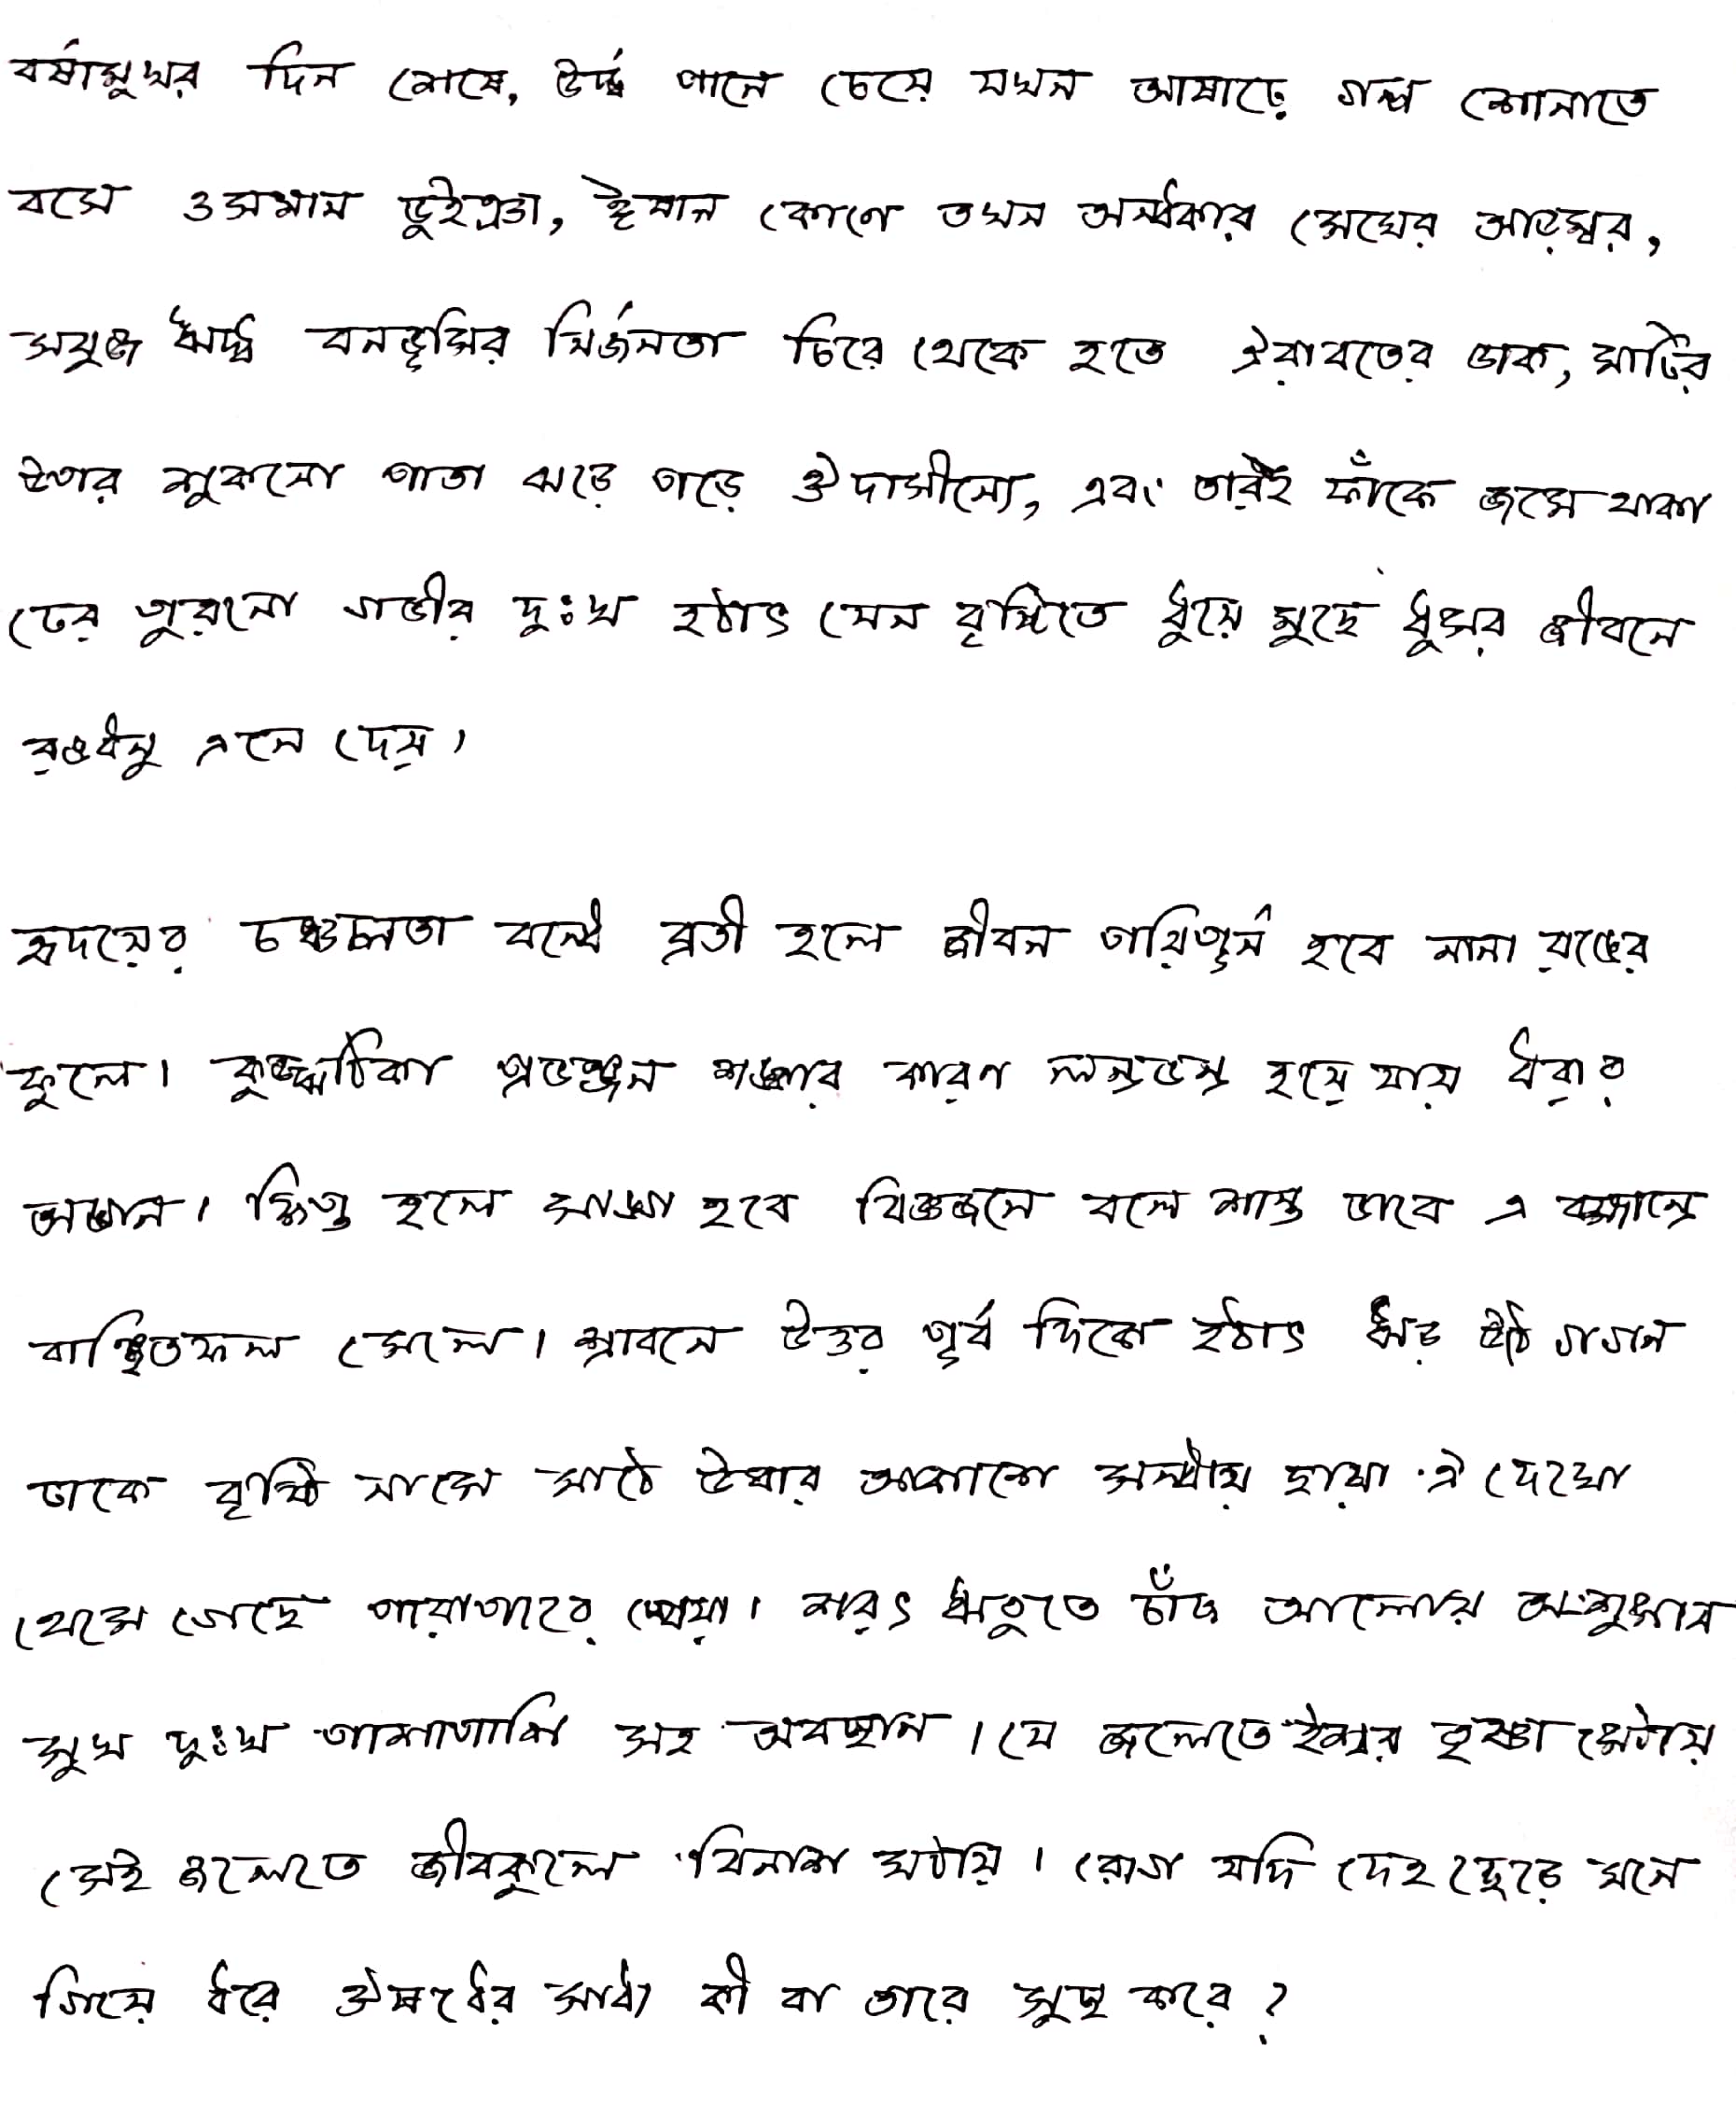 বর্ষামুখর দিন শেষে, ঊর্দ্ধ পানে চেয়ে যখন আষাঢ়ে গল্প শোনাতে
বসে ওসমান ভুইঞা, ঈষান কোণে তখন অন্ধকার মেঘের আড়ম্বর,
সবুজে ঋদ্ধ বনভূমির নির্জনতা চিরে থেকে হতে ঐরাবতের ডাক, মাটির
উপর শুকনো পাতা ঝরে পড়ে ঔদাসীন্যে, এবং তারই ফাঁকে জমে থাকা
ঢের পুরনো গভীর দুঃখ হঠাৎ যেন বৃষ্টিতে ধুয়ে মুছে ধুসর জীবনে
রঙধনু এনে দেয়।
হৃদয়ের চঞ্চলতা বন্ধে ব্রতী হলে জীবন পরিপূর্ন হবে নানা রঙের
ফুলে। কুজ্ঝটিকা প্রভঞ্জন শঙ্কার কারণ লন্ডভন্ড হয়ে যায় ধরার
অঙ্গন। ক্ষিপ্ত হলে সাঙ্গ হবে বিজ্ঞজনে বলে শান্ত ভাবে এ ব্রহ্মান্ডে
বাঞ্ছিতফল মেলে। শ্রাবনে উত্তর পূর্ব দিকে হঠাৎ ঝড় উঠে গগন
ঢাকে বৃষ্টি নামে মাঠে উষার আকাশে সন্ধ্যায় ছায়া ঐ দেখো
থেমে গেছে পারাপারের খেয়া। শরৎ ঋতুতে চাঁদ আলোয় অংশুমান
সুখ দুঃখ পাশাপাশি সহ অবস্থান। যে জলেতে ঈশ্বর তৃষ্ণা মেটায়
সেই জলেতে জীবকুলে বিনাশ ঘটায়। রোগ যদি দেহ ছেড়ে মনে
গিয়ে ধরে ঔষধের সাধ্য কী বা তারে সুস্থ করে?